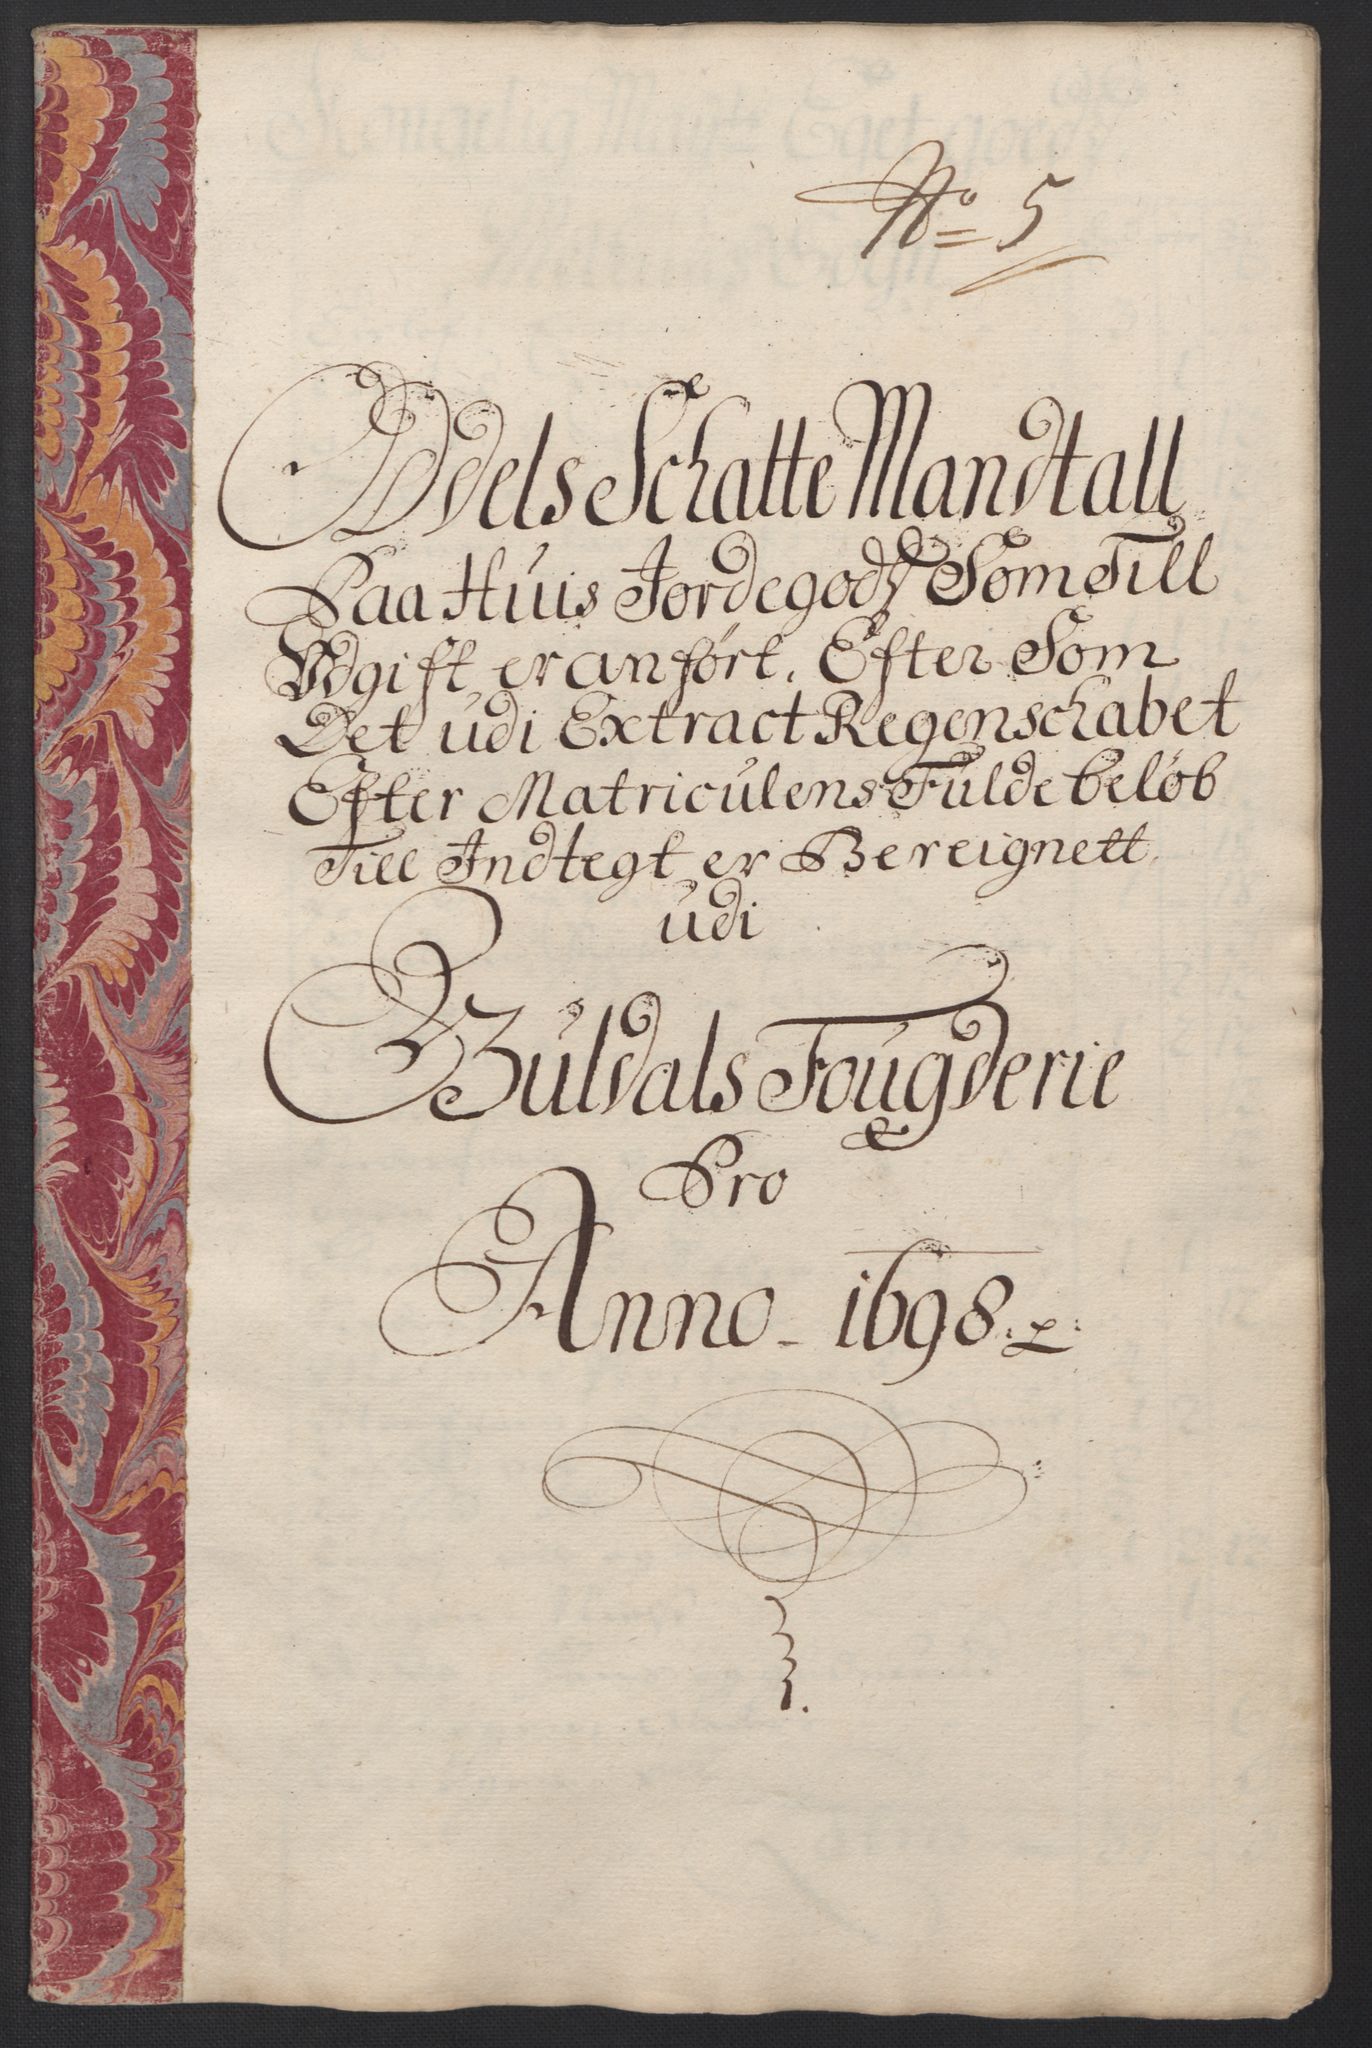 No 5
Odels Schatte Mandtall
Paa Huis Jordegodz Som Till
Udgift er anført. Efter Som
Det udi Extract Regenschabet
Efter Matriculens Fulde beløb
Till Indtegt er Bereignett
udi
Guldals Fougderie
Pro
Anno 1698